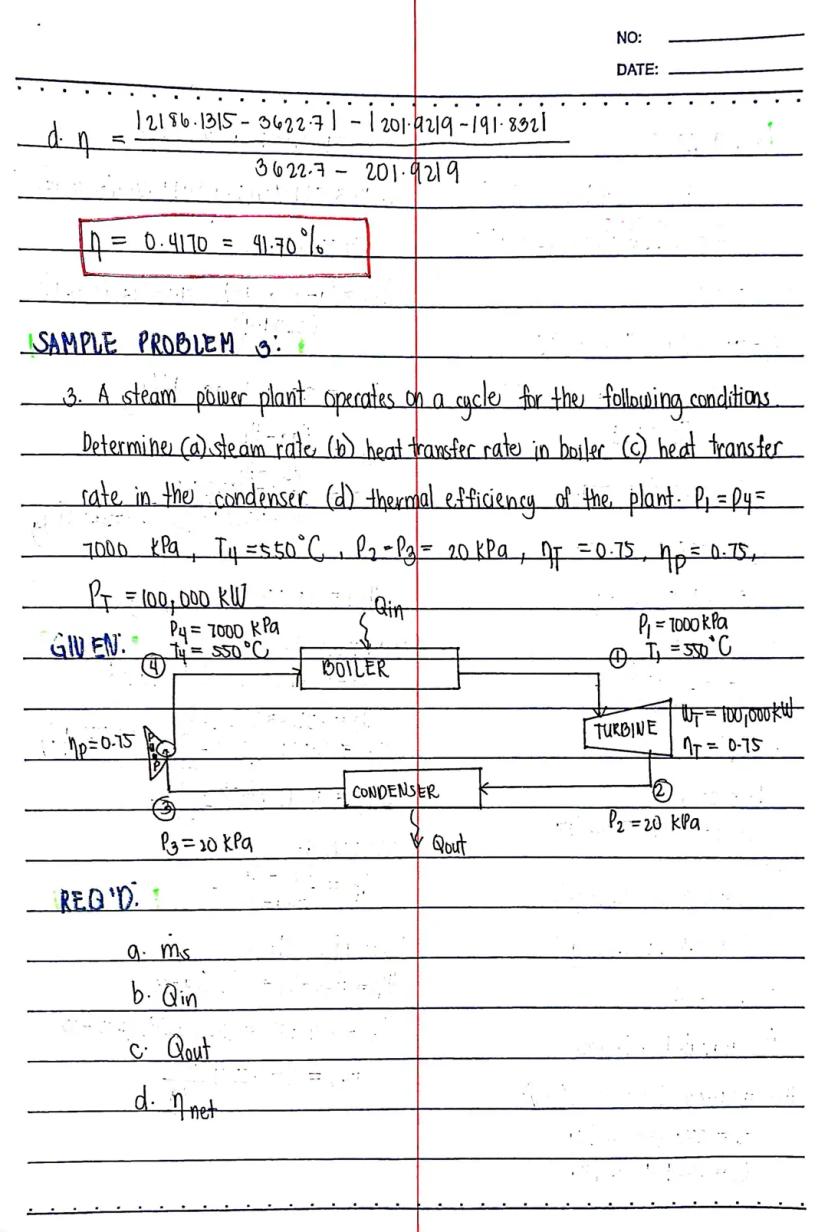 NO:
DATE:
d. η = |2186.1315 - 3622.7| - |201.9219 - 191.832|
3622.7 - 201.9219
η = 0.4170 = 41.70%
SAMPLE PROBLEM 3:
3. A steam power plant operates on a cycle for the following conditions.
Determine (a) steam rate (b) heat transfer rate in boiler (c) heat transfer
rate in the condenser (d) thermal efficiency of the plant. P1 = P4 =
7000 kPa, T4 = 550°C, P2 - P3 = 20 kPa, ηT = 0.75, ηp = 0.75,
PT = 100,000 KW
GIVEN:
P4 = 7000 KPa
T4 = 550°C
Qin
P1 = 7000 KPa
T1 = 550°C
4
BOILER
1
ηp = 0.75
PUMP
TURBINE
WT = 100,000 KW
ηT = 0.75
CONDENSER
3
2
P3 = 20 KPa
Qout
P2 = 20 KPa
REQ'D:
a. ṁs
b. Qin
c. Qout
d. η net